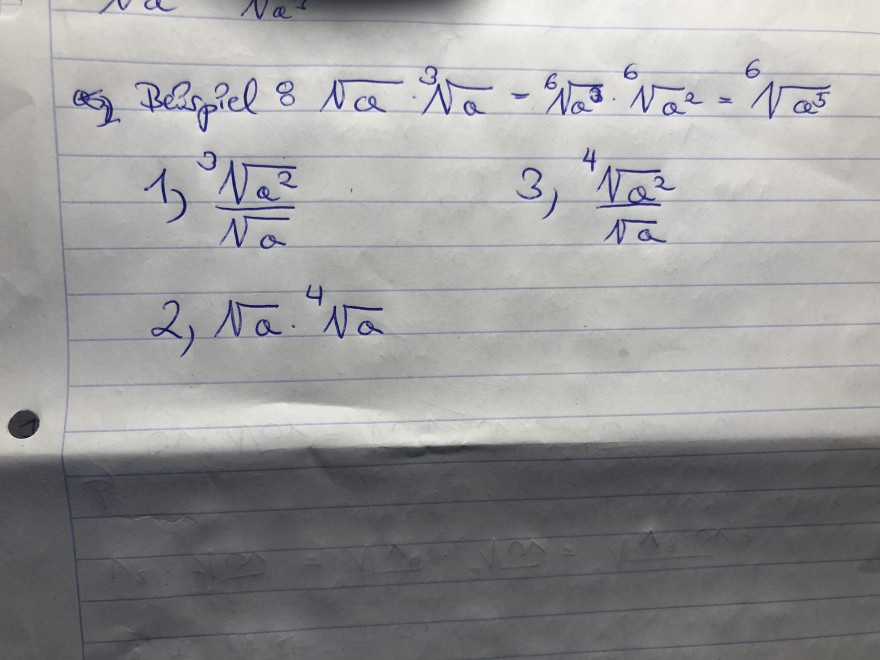 √a √a³
Beispiel 8 √a · ³√a = ⁶√a³ · ⁶√a² = ⁶√a⁵
1, ³√a² / √a 3, ⁴√a² / √a
2, √a · ⁴√a